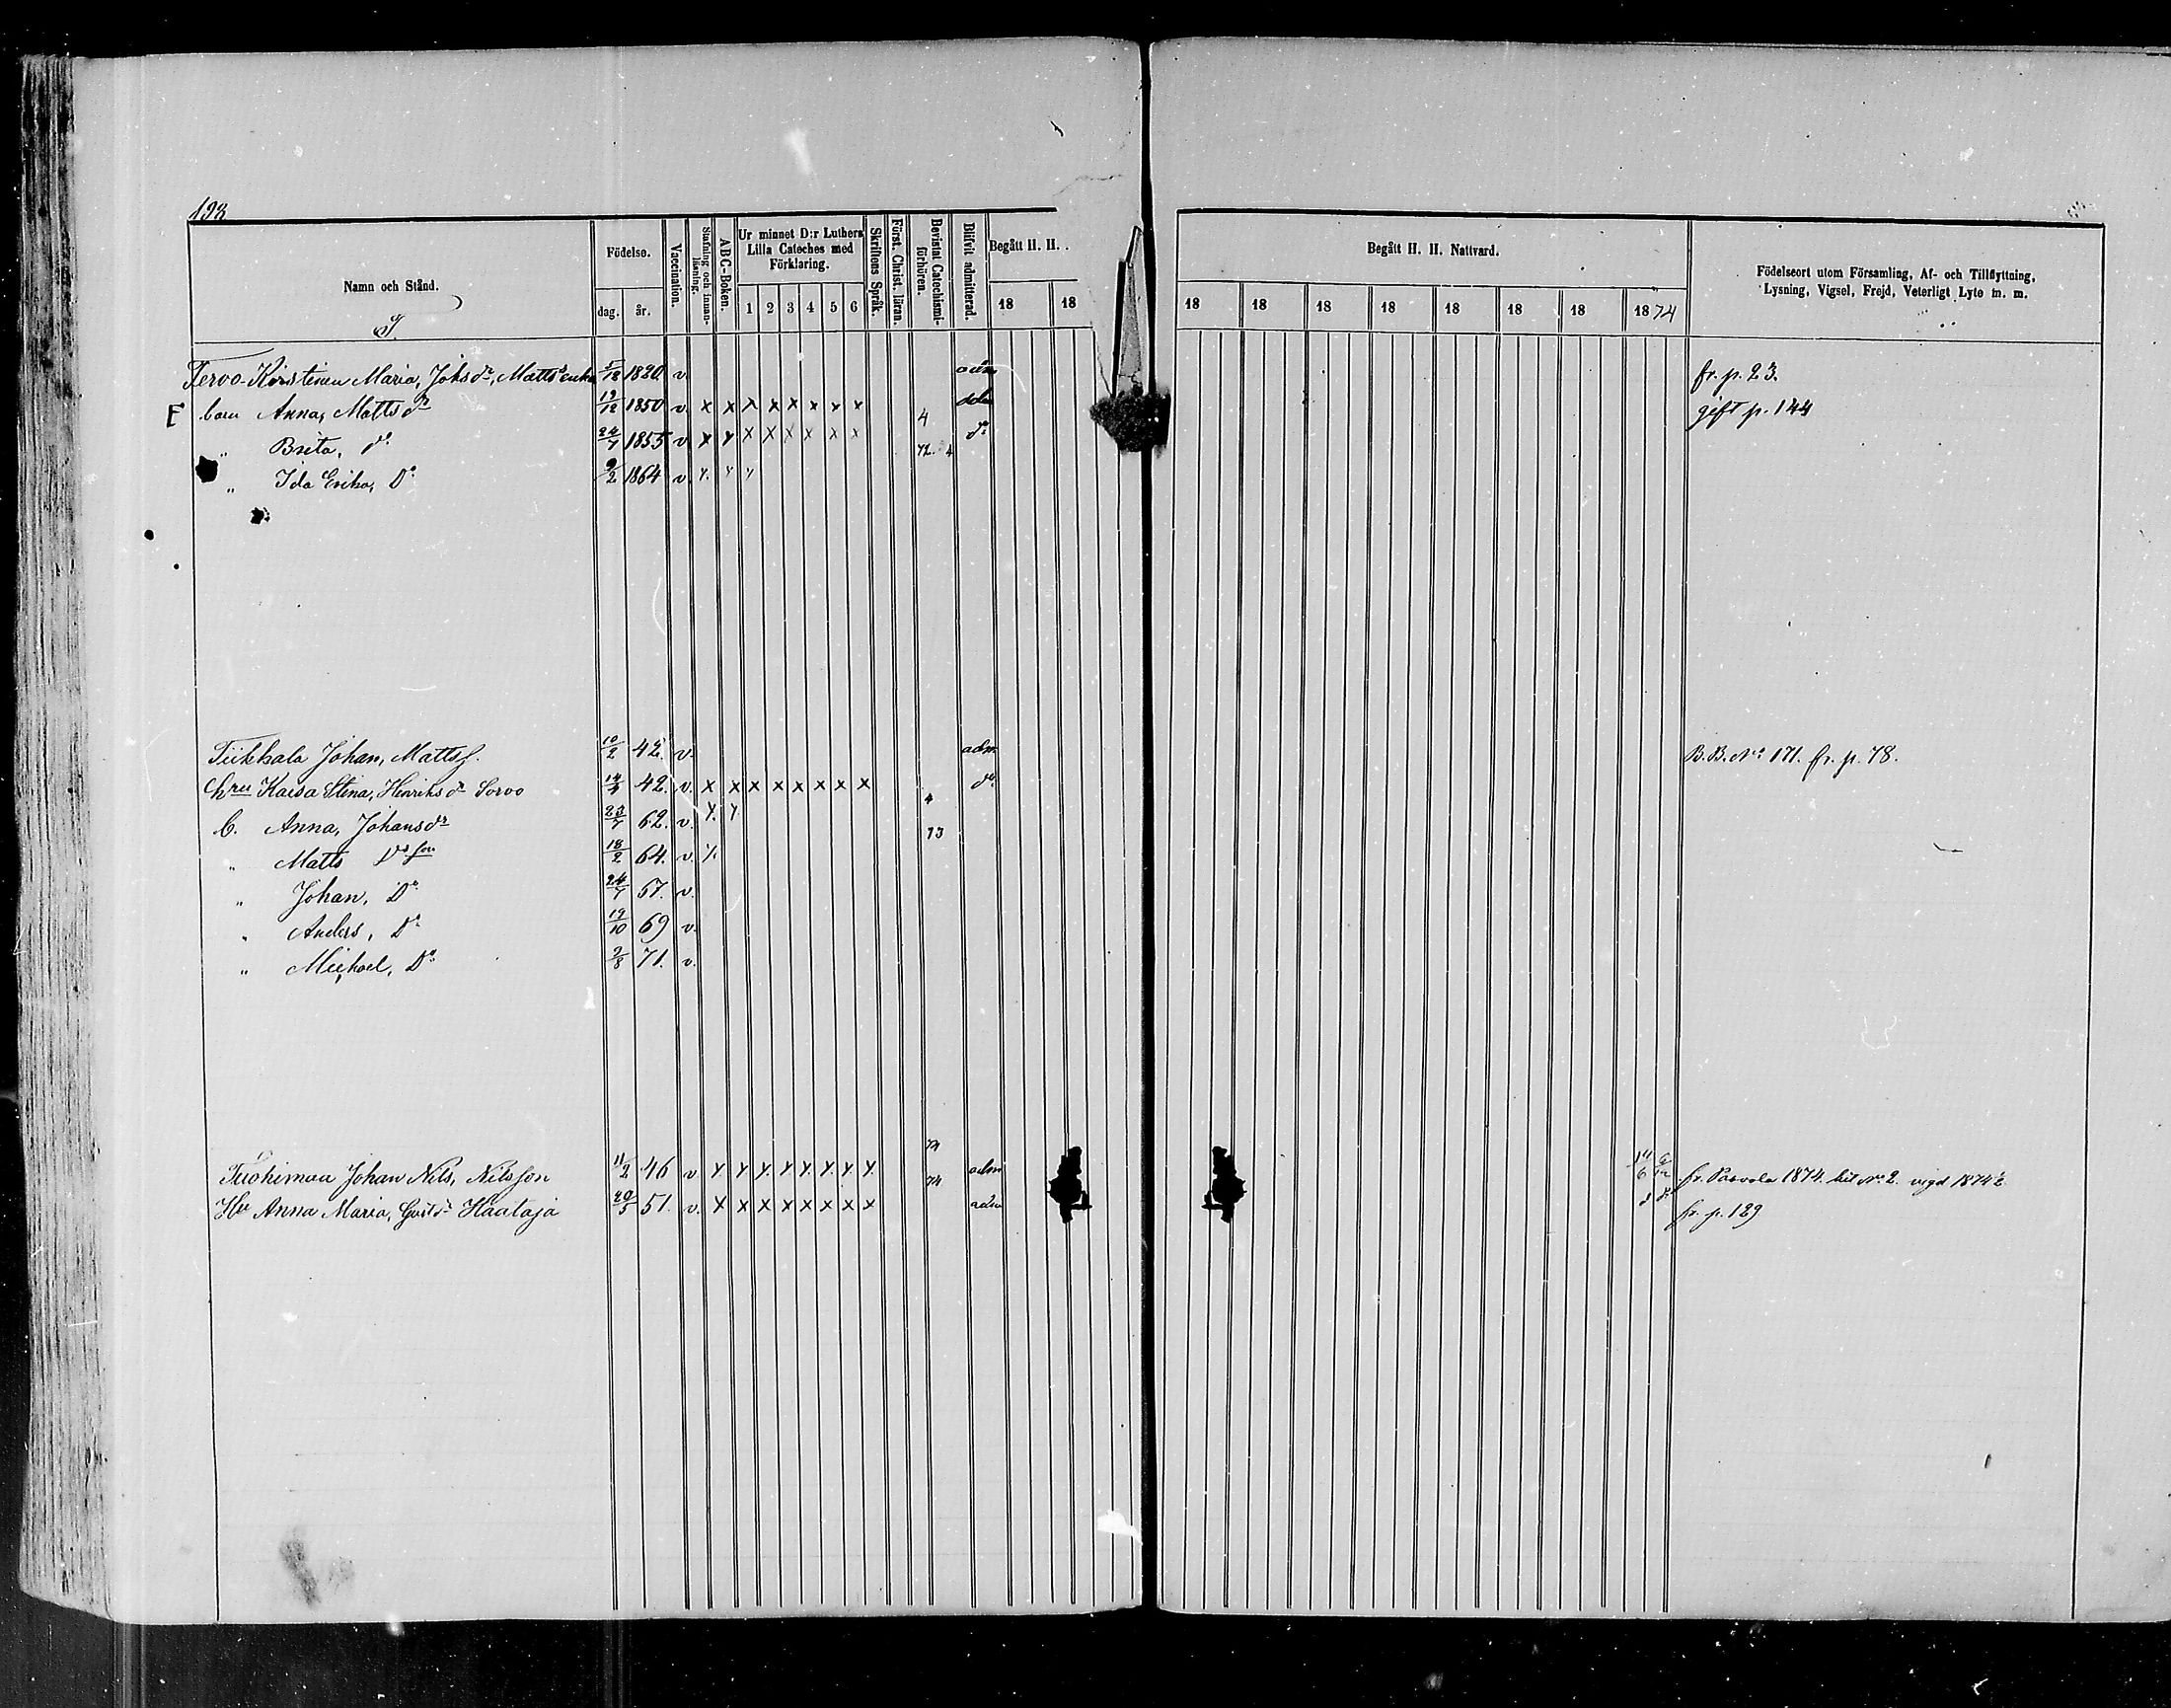 198
Namn och Stånd.
T.
Födelse.
dag. år.
Vaccination.
Stafning och innanläsning.
ABC-Boken.
Ur minnet D:r Luthers Lilla Cateches med Förklaring.
1 2 3 4 5 6
Skriftens Språk.
Först. Christ. läran.
Bevistat Catechismiförhören.
Blifvit admitterad.
Begått H. H.
18 18
Begått H. H. Nattvard.
18 18 18 18 18 18 18 1874
Födelseort utom Församling, Af- och Tillflyttning,
Lysning, Vigsel, Frejd, Veterligt Lyte m. m.
Tervo-Kirstinen Maria, Johsdr, Matts enka 5/12 1820 v. adm fr. p. 23.
F barn Anna, Mattsdr 19/12 1850 v. x x x x x x x x 4 adm gift p. 144
" Brita, do 24/7 1855 v. x x x x x x x x 72. 4 do
" Ida Erika, Do 9/2 1864 v. x x x
Tiikkala Johan, Mattss. 10/2 42. v. adm B. B. No 171. fr. p. 78.
hru Kaisa Stina, Henriksdr Sorvo 42. v. x x x x x x x x do
b. Anna, Johansdr 23/7 62. v. x x 4 73
" Matts Do son 18/2 64. v. x
" Johan, Do 24/7 67. v.
" Anders, Do 19/10 69 v.
" Michael, Do 9/8 71. v.
Tuohimaa Johan Nils, Nilsson 11/2 46 v x x x x x x x x 74 adm fr. Paavola 1874. bit No 2. vigd 1874
Hu Anna Maria, Gustdr Haataja 51. v. x x x x x x x x 74 adm fr. p. 129